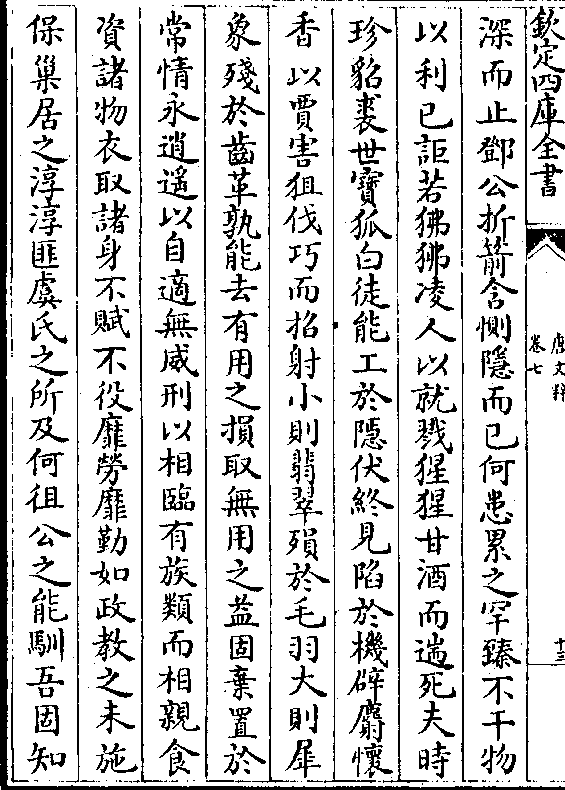 欽定四庫全書
唐文粹
卷七
十三
深而止鄧公折箭含惻隱而已何患累之罕臻不干物
以利已詎若狒狒凌人以就戮猩猩甘酒而遄死夫時
珍貂裘世寶狐白徒能工於隱伏終見陷於機辟麝懷
香以賈害狙伐巧而招射小則翡翠殞於毛羽大則犀
象殘於齒革孰能去有用之損取無用之益固棄置於
常情永逍遥以自適無威刑以相臨有族類而相親食
資諸物衣取諸身不賦不役靡勞靡勤如政教之未施
保巢居之淳淳匪虞氏之所及何徂公之能馴吾固知